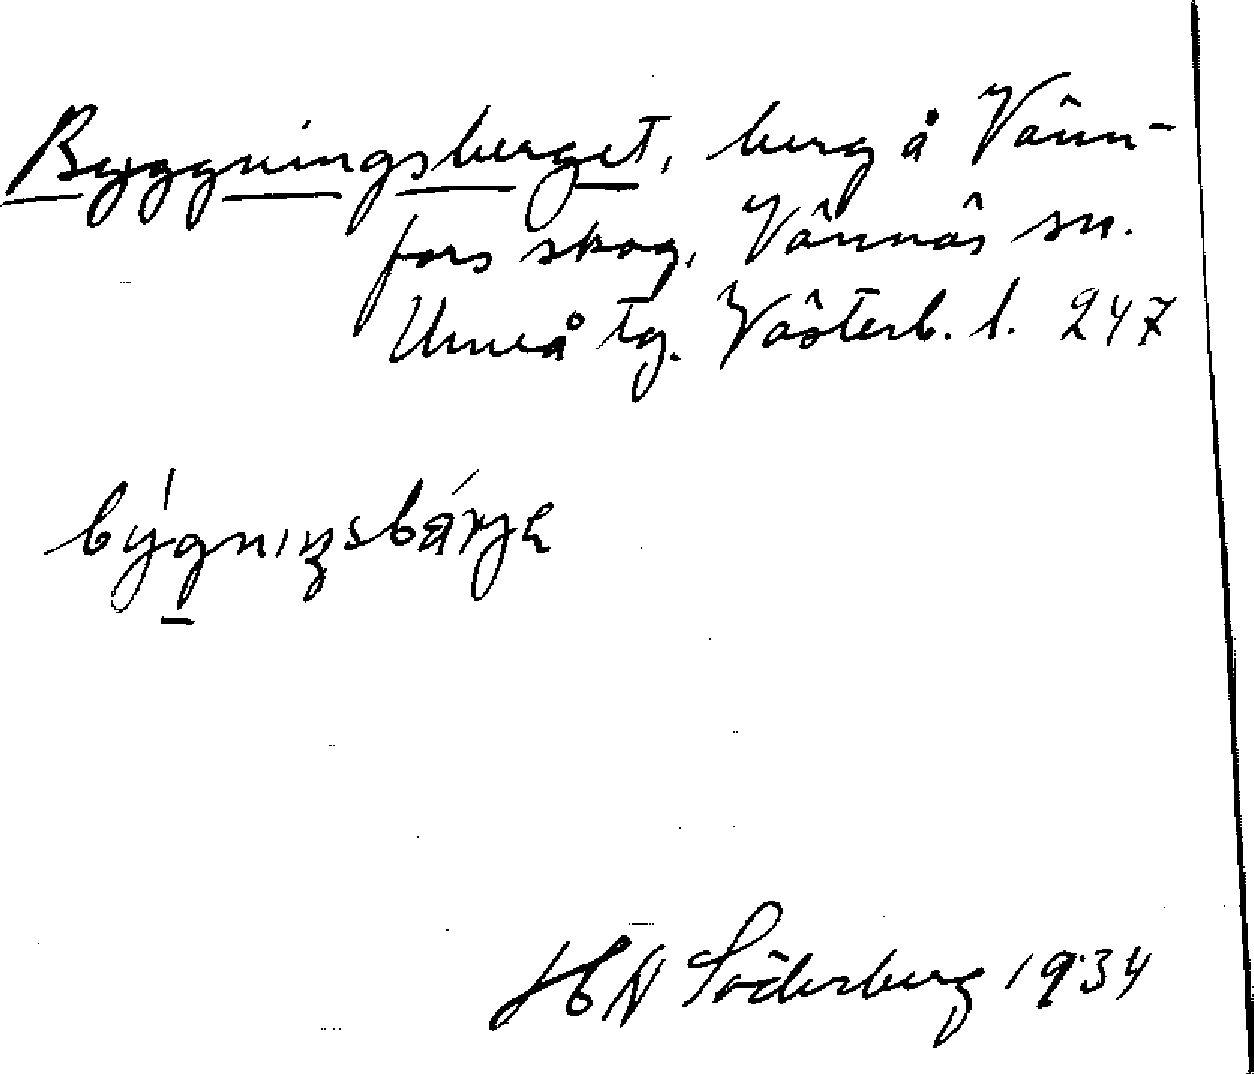 Byggningsberget, berg å Vänn-
fors skog, Vännäs sn.
Umeå tg. Västerb. l. 247
býgnıŋsbárjɛ
HN Söderberg 1934